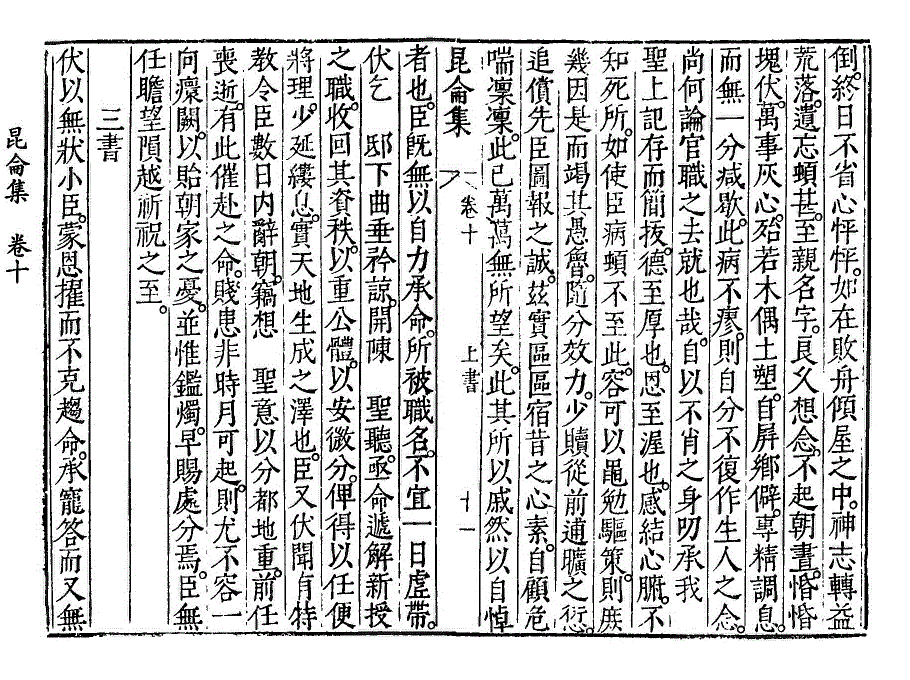 倒。終日不省心怦怦。如在敗舟傾屋之中。神志轉益
荒落。遺忘頓甚。至親名字。良久想念。不起朝晝。惛惛
塊伏。萬事灰心。殆若木偶土塑。自屛鄕僻。專精調息。
而無一分减歇。此病不瘳。則自分不復作生人之念。
尙何論官職之去就也哉。自以不肖之身。叨承我
聖上記存而簡拔。德至厚也。恩至渥也。感結心腑。不
知死所。如使臣病頓不至此。容可以黽勉驅策。則庶
幾因是而竭其愚魯。隨分效力。少贖從前逋曠之愆。
追償先臣圖報之誠。玆實區區宿昔之心素。自顧危
喘凜凜。此已萬萬無所望矣。此其所以戚然以自悼
昆侖集 卷十 上書 十一
者也。臣旣無以自力承命。所被職名。不宜一日虛帶。
伏乞 邸下曲垂矜諒。開陳 聖聽。亟命遞解新授
之職。收回其資秩。以重公體。以安微分。俾得以任便
將理。少延縷息。實天地生成之澤也。臣又伏聞有特
敎令臣數日內辭朝。竊想 聖意以分都地重。前任
喪逝。有此催赴之命。賤患非時月可起。則尤不容一
向癏闕。以貽朝家之憂。並惟鑑燭。早賜處分焉。臣無
任瞻望隕越祈祝之至。
三書
伏以無狀小臣。蒙恩擢而不克趨命。承寵答而又無
昆侖集 卷十